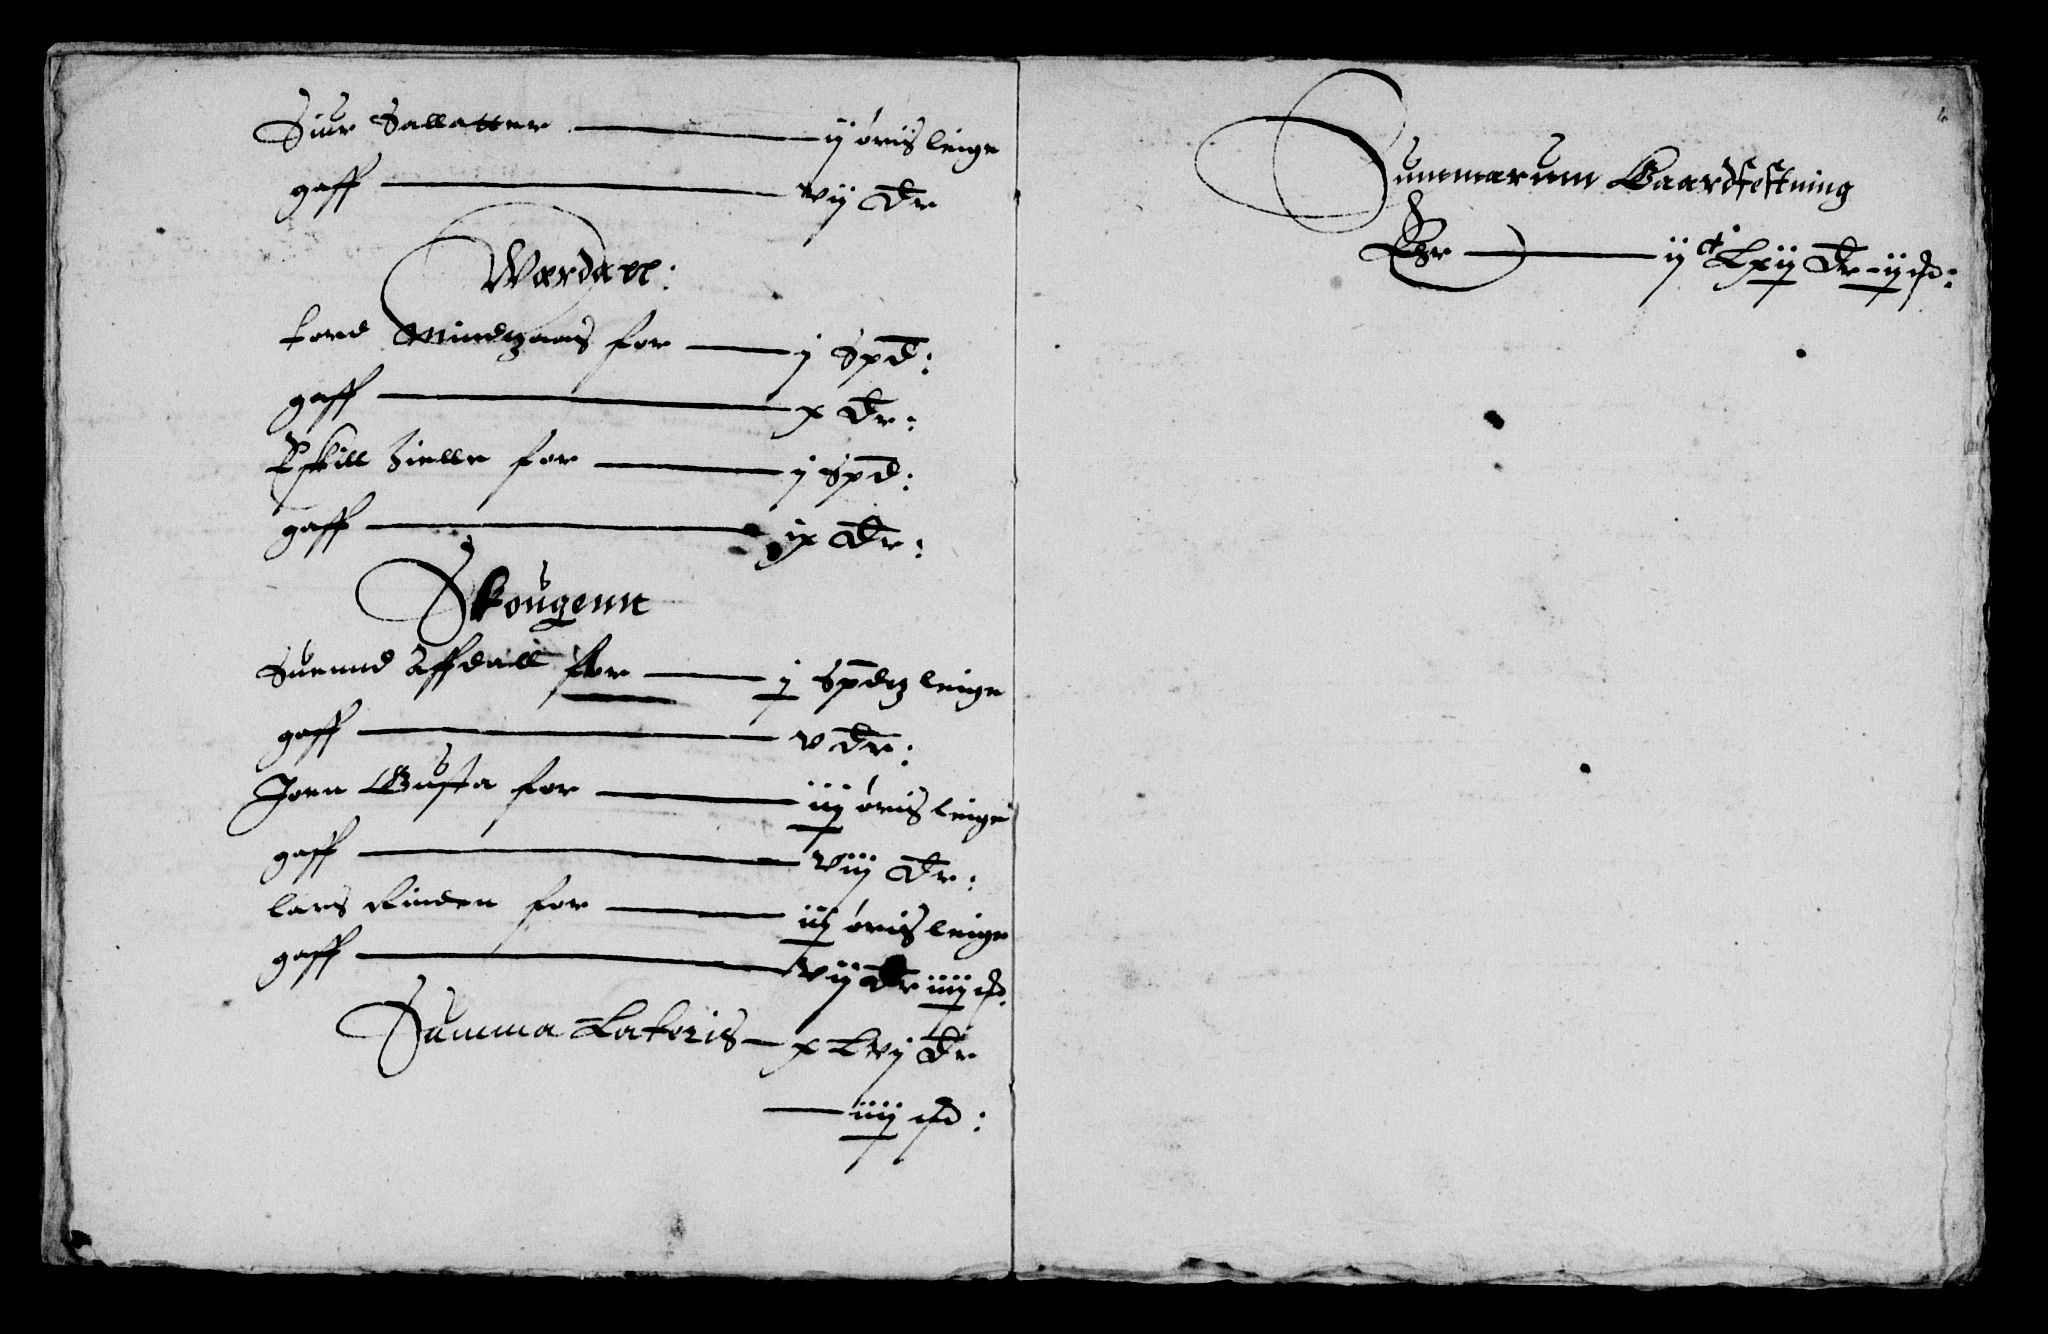 Siur Sallatter — ij øris leige
gaff — vij dr
Wærdaell:
tord Mindzaas for — j Spd:
gaff — x dr:
Eskill Zielle for — j Spd:
gaff — ix dr:
Skougenn
Suennd Affdall for — j Spdz leige
gaff — v dr:
Joen Gusta for — iij øris leige
gaff — viij dr:
lars Rinden for — iij øris leige
gaff — vij dr iiij sd:
Summa Lateris — x Lvj dr
— iiij sd:
Summarum Gaardfestning
Er — ij ct Lxij dr – ij sd: